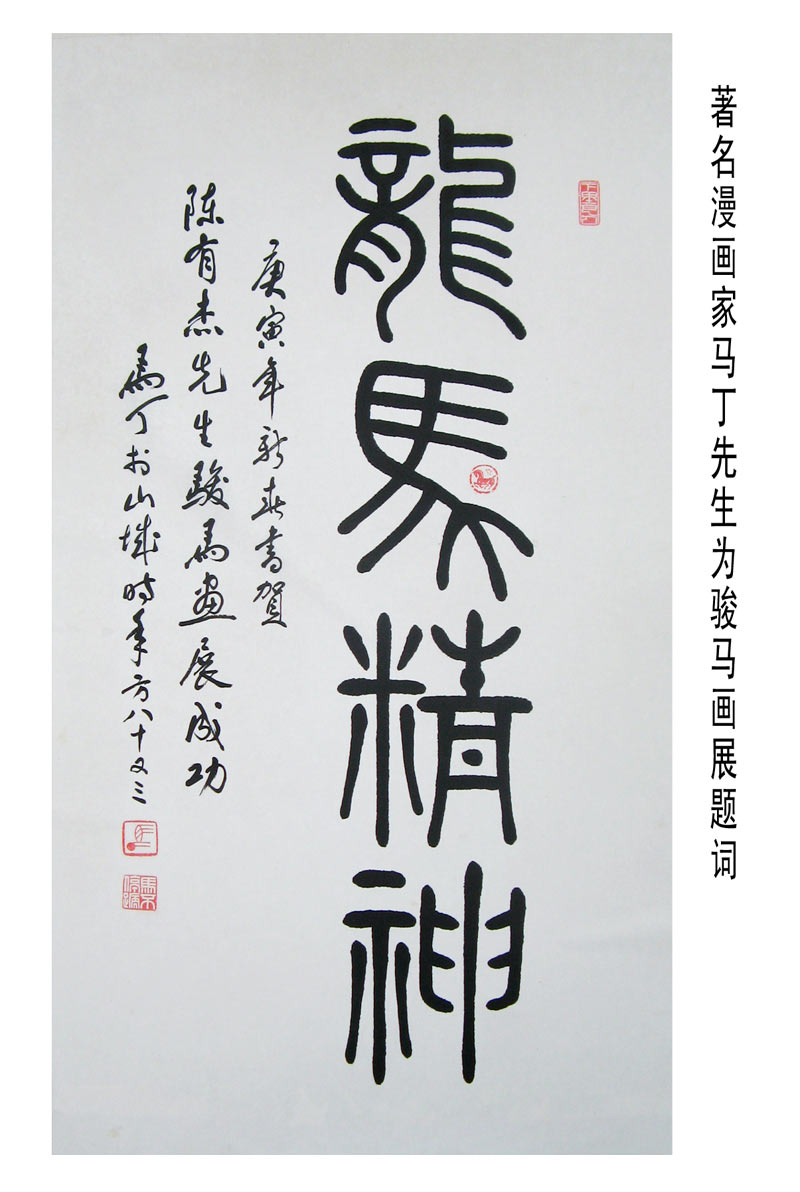 著名漫画家马丁先生为骏马画展题词
龍馬精神
庚寅年新春書賀
陈有杰先生駿馬画展成功
馬丁书山城时年方八十又三